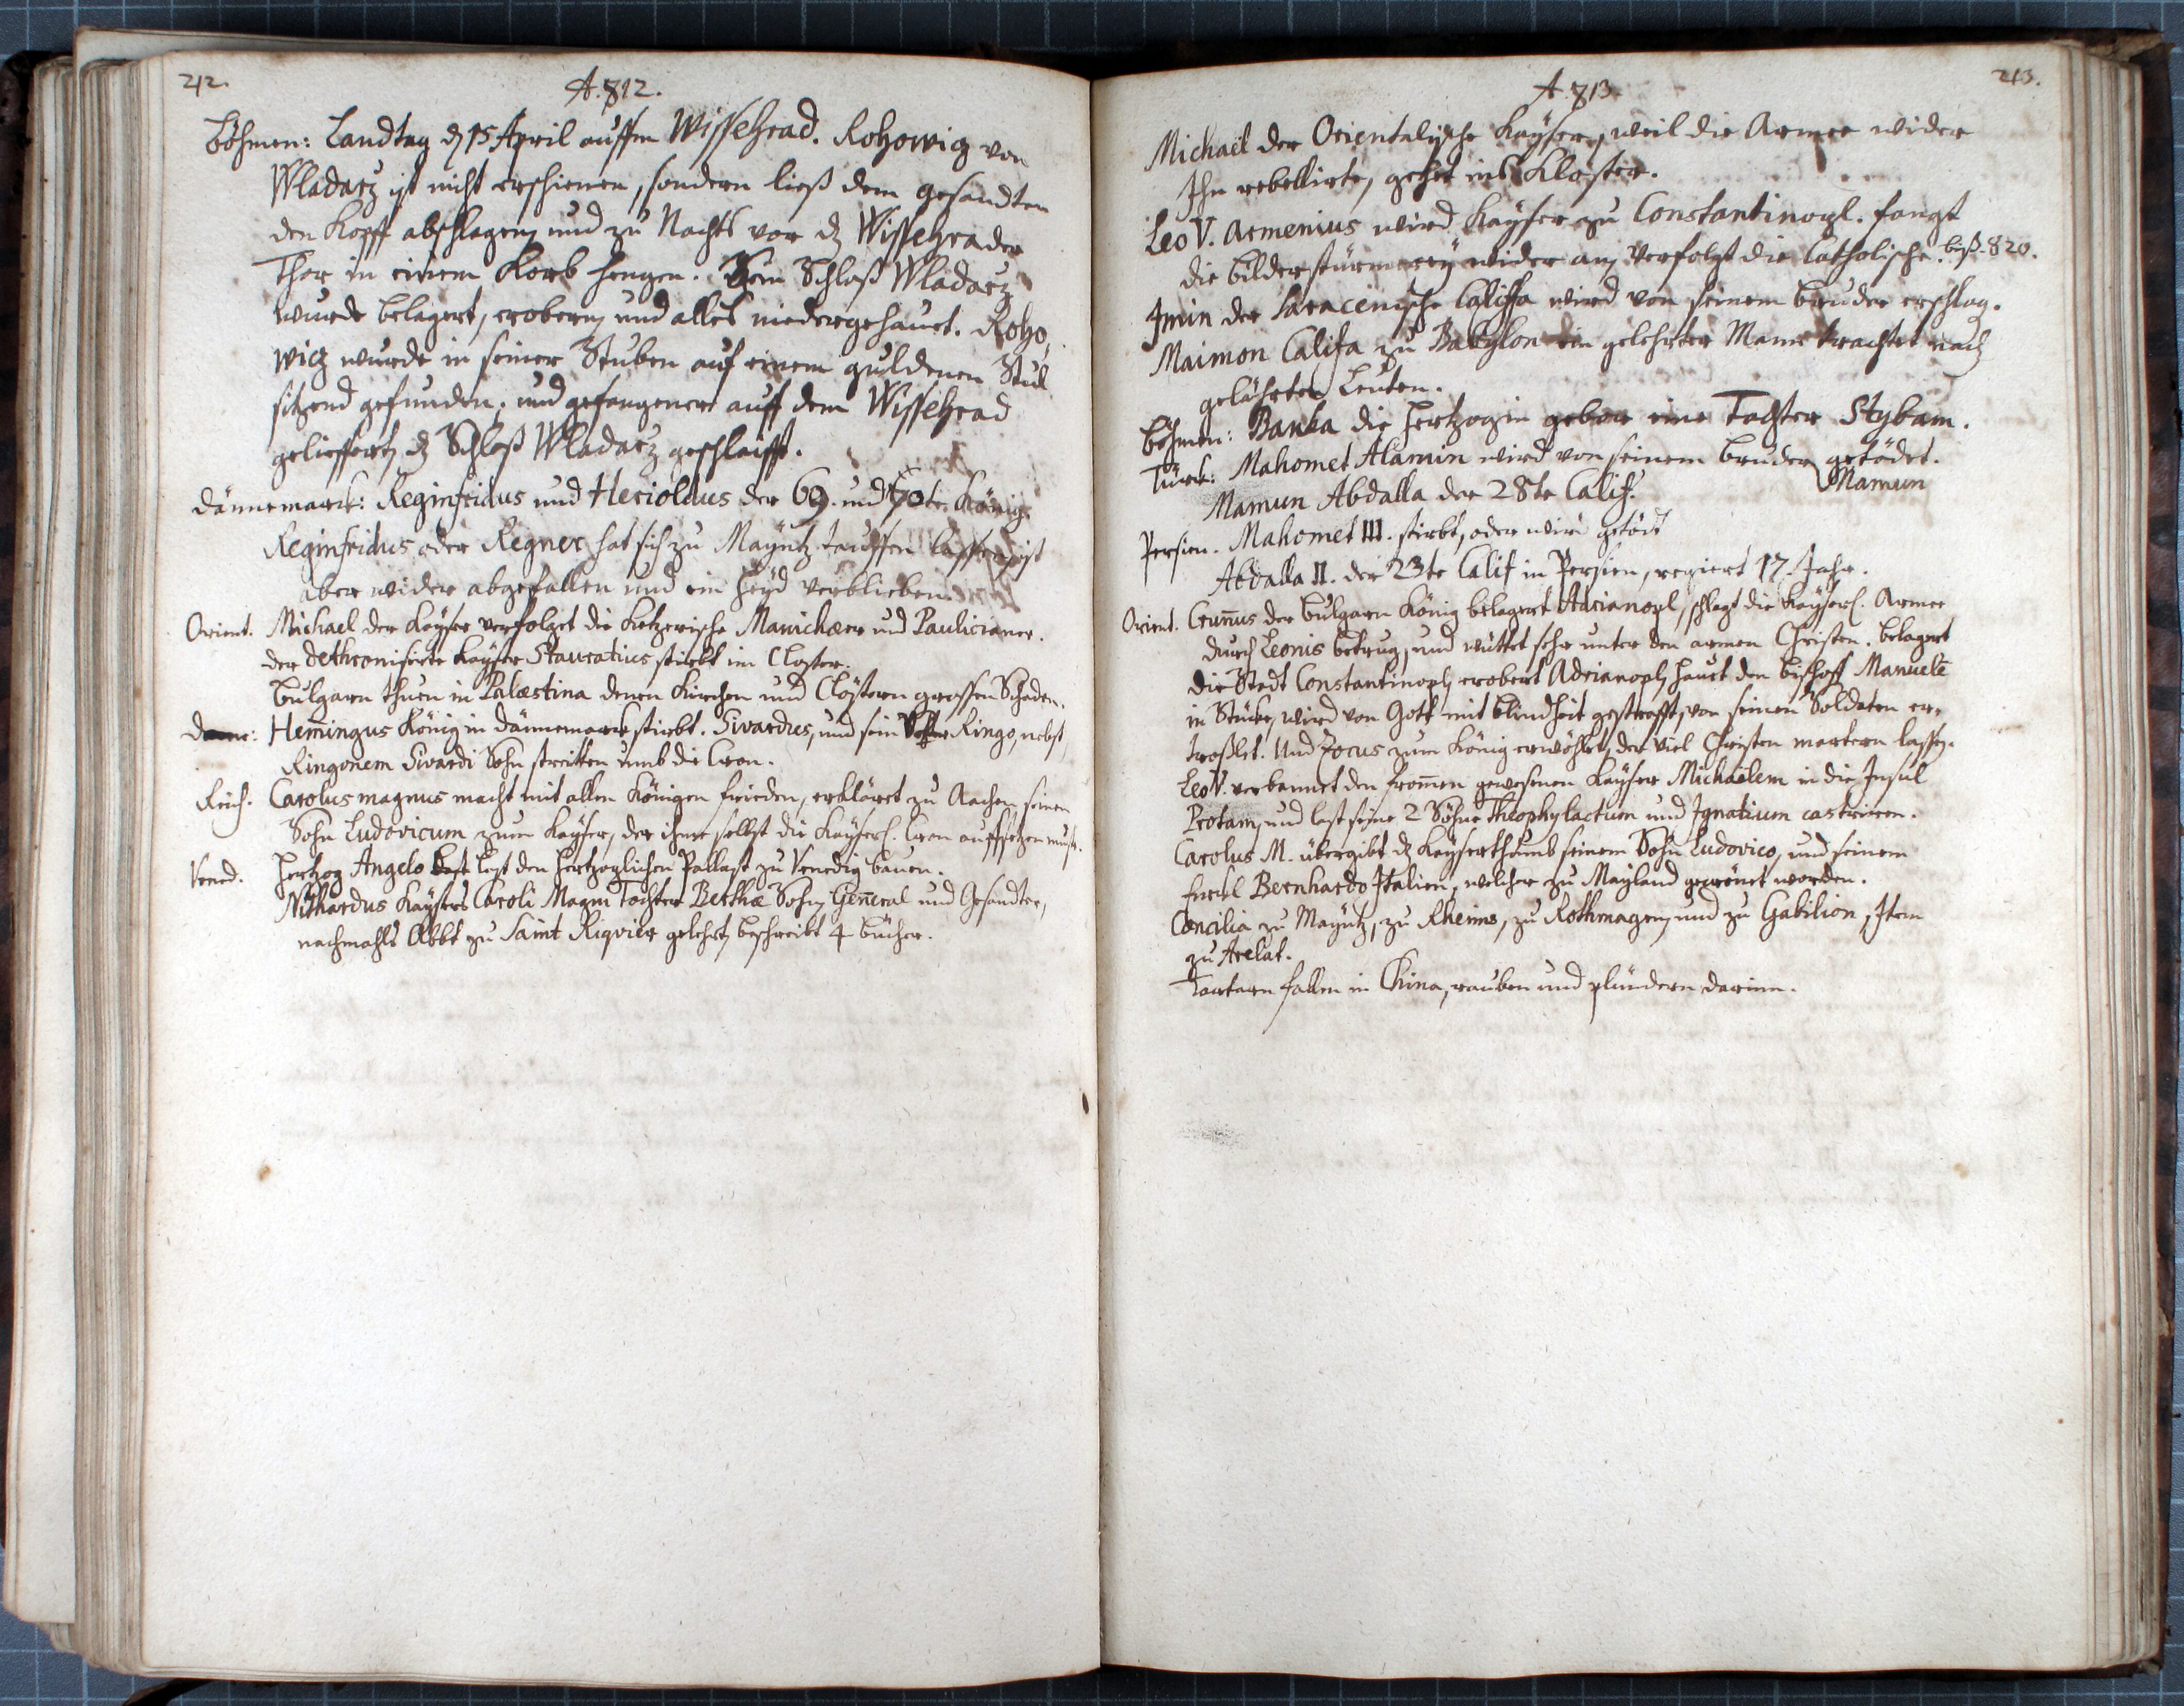 212.
A. 812.
Böhmen: Landtag dζ 15 April auffm Wissehrad. Rohowicz von
Wladarz ist nicht erschienen, sondern ließ dem gesandten
den Kopff abschlagen, und zu Nachts vor dζ Wissehrader
Thor in einem Korb hengen. Sein Schloß Wladarz
wurde belagert, erobern, und alles niedergehauet. Roho,
wicz wurde in seiner Stuben auf einem guldenen Stul
sitzend gefunden, und gefangener auff dem Wissehrad
gelieffert, dζ Schloß Wladarz geschlaifft.
Dännemarck: Reginfridus und Herioldus der 69. und 70te König.
Reginfridus oder Regner hat sich zu Mayntz tauffen lassen, ist
aber wider abgefallen und ein Heyd verblieben.
Orient. Michael der Kayser verfolget die Ketzerische Manichæer und Paulicianer.
der dethronisirte Kayser Stauratius stirbt im Closter.
Bulgarn thuen in Palæstina denen Kirchen und Clöstern grossen Schaden.
Denne: Hem̅ingus König in Dännemarck stirbt. Sivardus, und sein Ringo, nebst
Ringonem Sivardi Sohn streitten umb die Cron.
Reich. Carolus magnus macht mit allen Königen frieden, erkläret zu Aachen seinen
Sohn Ludovicum zum Kayser, der ihme selbst die Kayserl. Cron auffsetzen muste.
Vened. Hertzog Angelo lest den Hertzoglichen Pallast zu Venedig bauen.
Nithardus Kaysers Caroli Magni Tochter Berthæ Sohn, General und Gesandter,
nachmahls Abbt zu Saint Riqvier gelehrt, beschreibt 4 bücher.
213.
A. 813.
Michaël der Orientalische Kayser, weil die Armee wider
Ihn rebellirte, gehet ins Kloster.
Leo V. Armenius wird Kayser zu Constantinopl. fangt
die bilderstürmerey wider an, verfolgt die Catholische. biß 820.
Imin der Saracenische Califfa wird von seinem bruder erschlag.
Maimon Califa zu Babylon ein gelehrter Mann trachtet nach
gelährten Leuten.
Böhmen: Banka die Hertzogin gebar eine Tochter Stybam.
Türck: Mahomet Alamin wird von seinem bruder getödet.
Mamun
Mamun Abdalla der 28te Calif.
Persien. Mahomet III. stirbt, oder wird getödt
Abdalla II. der 23te Calif in Persien, regiert 17. Jahr.
Orient. Crum̅us der bulgarn König belagert Adrianopl, schlagt die Kayserl. Armee
durch Leonis betrug, und wüttet sehr unter den armen Christen. belagert
die Stadt Constantinopl, erobert Adrianopl, haut den bischoff Manuelē
in Stücke, wird von Gott mit blindheit gestrafft, von seinen Soldaten er,
troßlet. Und Zocus zum König erwöhlet, der viel Christen martern lassen.
Leo V. verbannet den from̅en gewesenen Kayser Michaëlem in die Insul
Protam, und lest seine 2 Söhne Theophylactum und Ignatium castriren.
Carolus M. übergibt dζ Kayserthumb seinem Sohn Ludovico, und seinem
Enckl Bernhardo Italien, welcher zu Mayland gecrönet worden.
Concilia zu Mayntz, zu Rheims, zu Rothmagen, und zu Gabilion, Item
zu Arelat.
Tartarn fallen in China, rauben und plündern darinn.